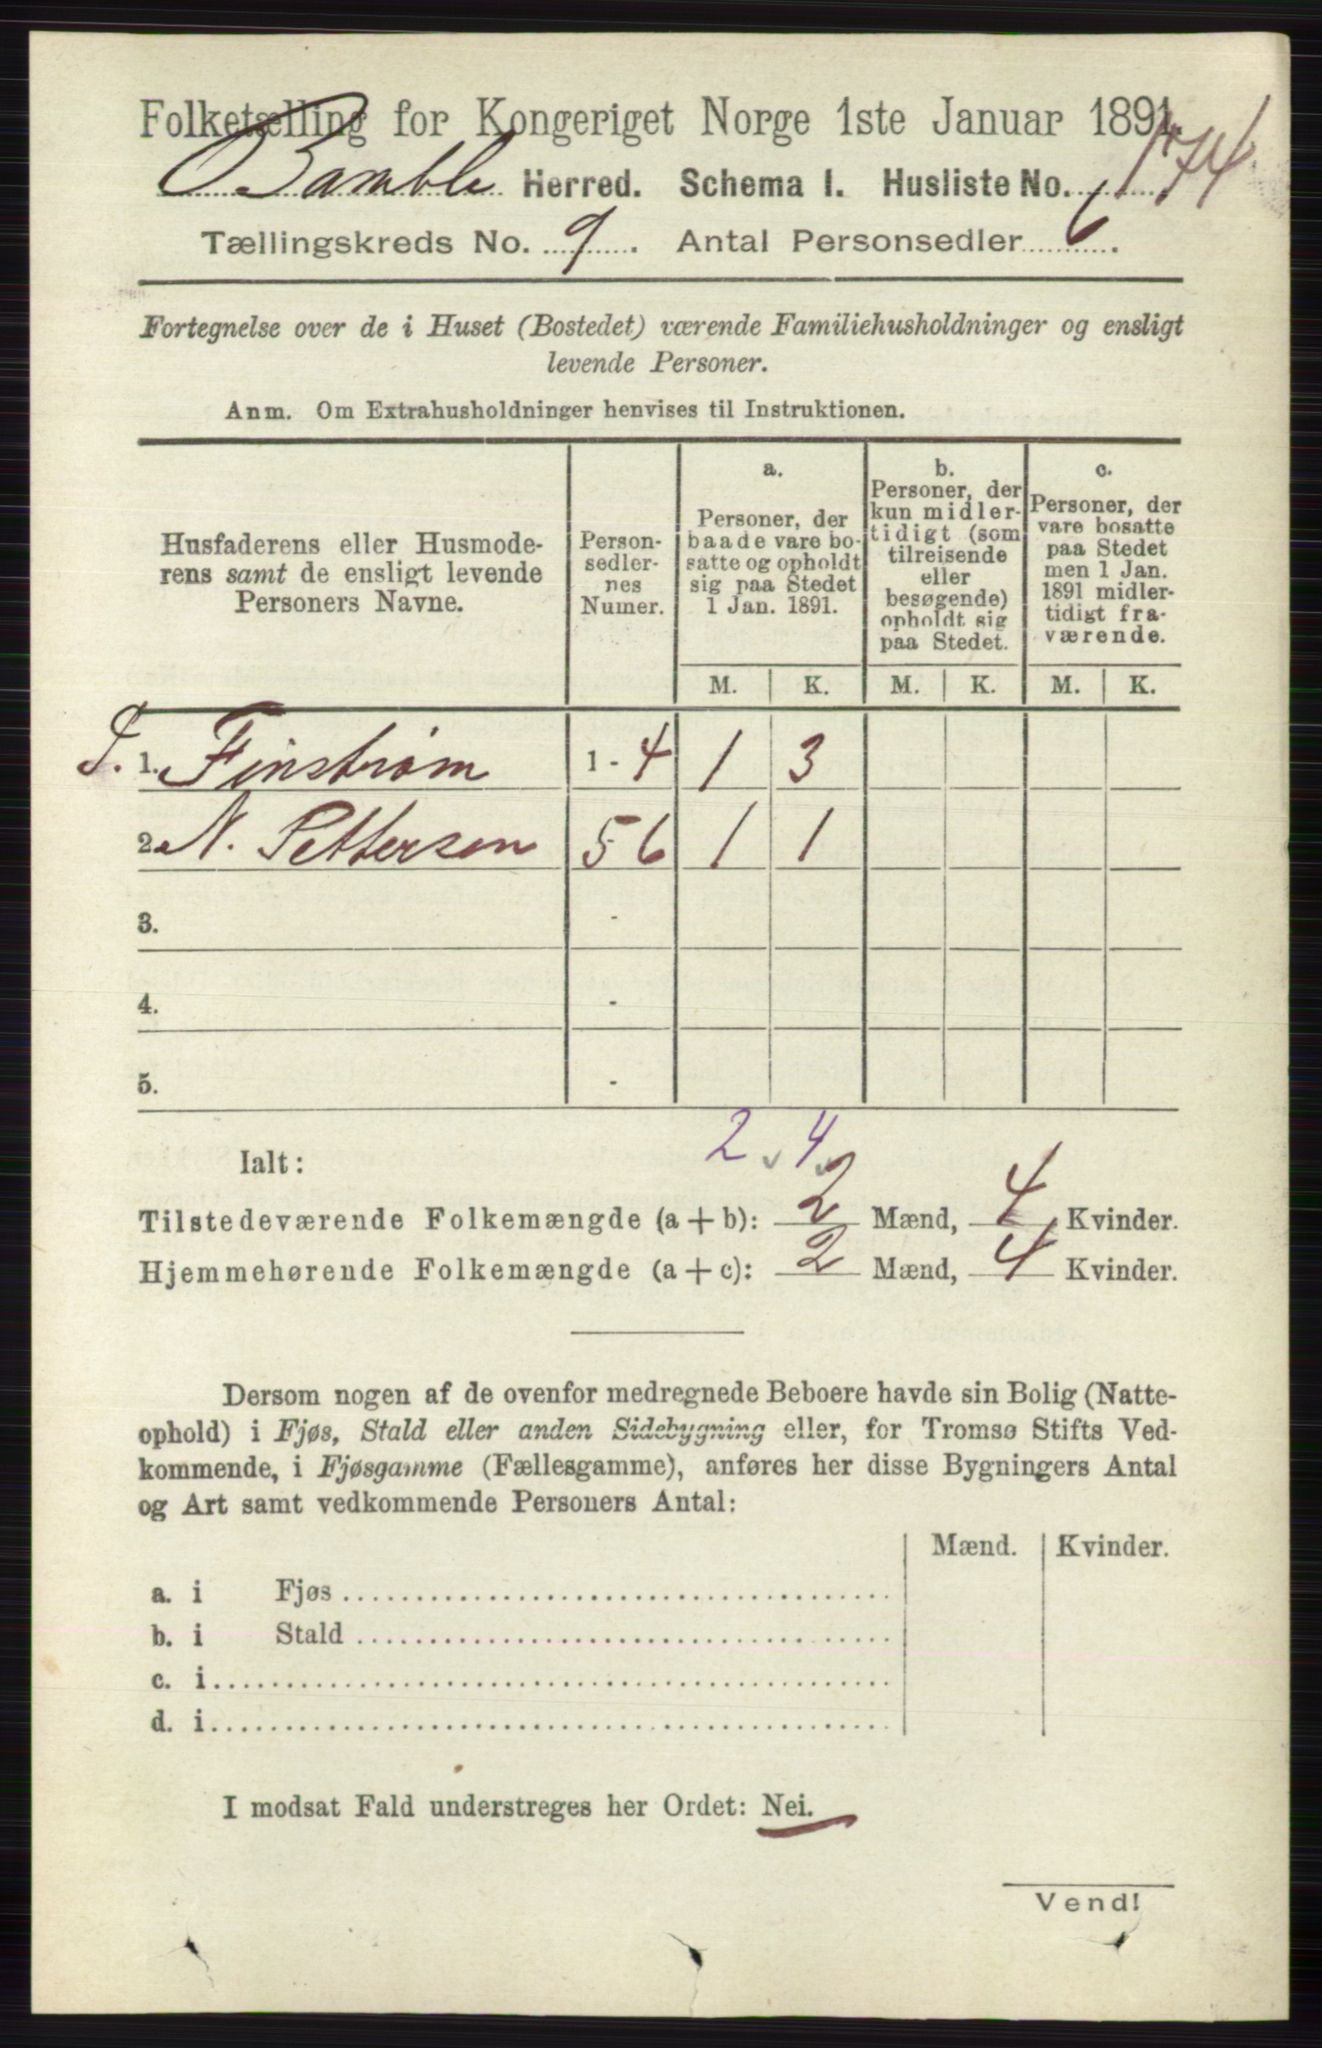 Folketælling for Kongeriget Norge 1ste Januar 1891.
Bamble Herred. Schema I. Husliste No. 174
Tællingskreds No. 9. Antal Personsedler 6.
Fortegnelse over de i Huset (Bostedet) værende Familiehusholdninger og ensligt
levende Personer.
Anm. Om Extrahusholdninger henvises til Instruktionen.
Husfaderens eller Husmode-
rens samt de ensligt levende
Personers Navne.
Person-
sedler-
nes
Numer.
a.
Personer, der
baade vare bo-
satte og opholdt
sig paa Stedet
1 Jan. 1891.
b.
Personer, der
kun midler-
tidigt (som
tilreisende
eller
besøgende)
opholdt sig
paa Stedet.
c.
Personer, der
vare bosatte
paa Stedet
men 1 Jan.
1891 midler-
tidigt fra-
værende.
M. K. M. K. M. K.
1. Finstrøm 1 - 4 1 3
2. N. Pettersen 5 6 1 1
3. -
4. -
5. -
2 4
Ialt:
Tilstedeværende Folkemængde (a + b): 2 Mænd, 4 Kvinder.
Hjemmehørende Folkemængde (a + c): 2 Mænd, 4 Kvinder.
Dersom nogen af de ovenfor medregnede Beboere havde sin Bolig (Natte-
ophold) i Fjøs, Stald eller anden Sidebygning eller, for Tromsø Stifts Ved-
kommende, i Fjøsgamme (Fællesgamme), anføres her disse Bygningers Antal
og Art samt vedkommende Personers Antal:
Mænd. Kvinder.
a. i Fjøs
b. i Stald
c. i
d. i
I modsat Fald understreges her Ordet: Nei.
Vend!